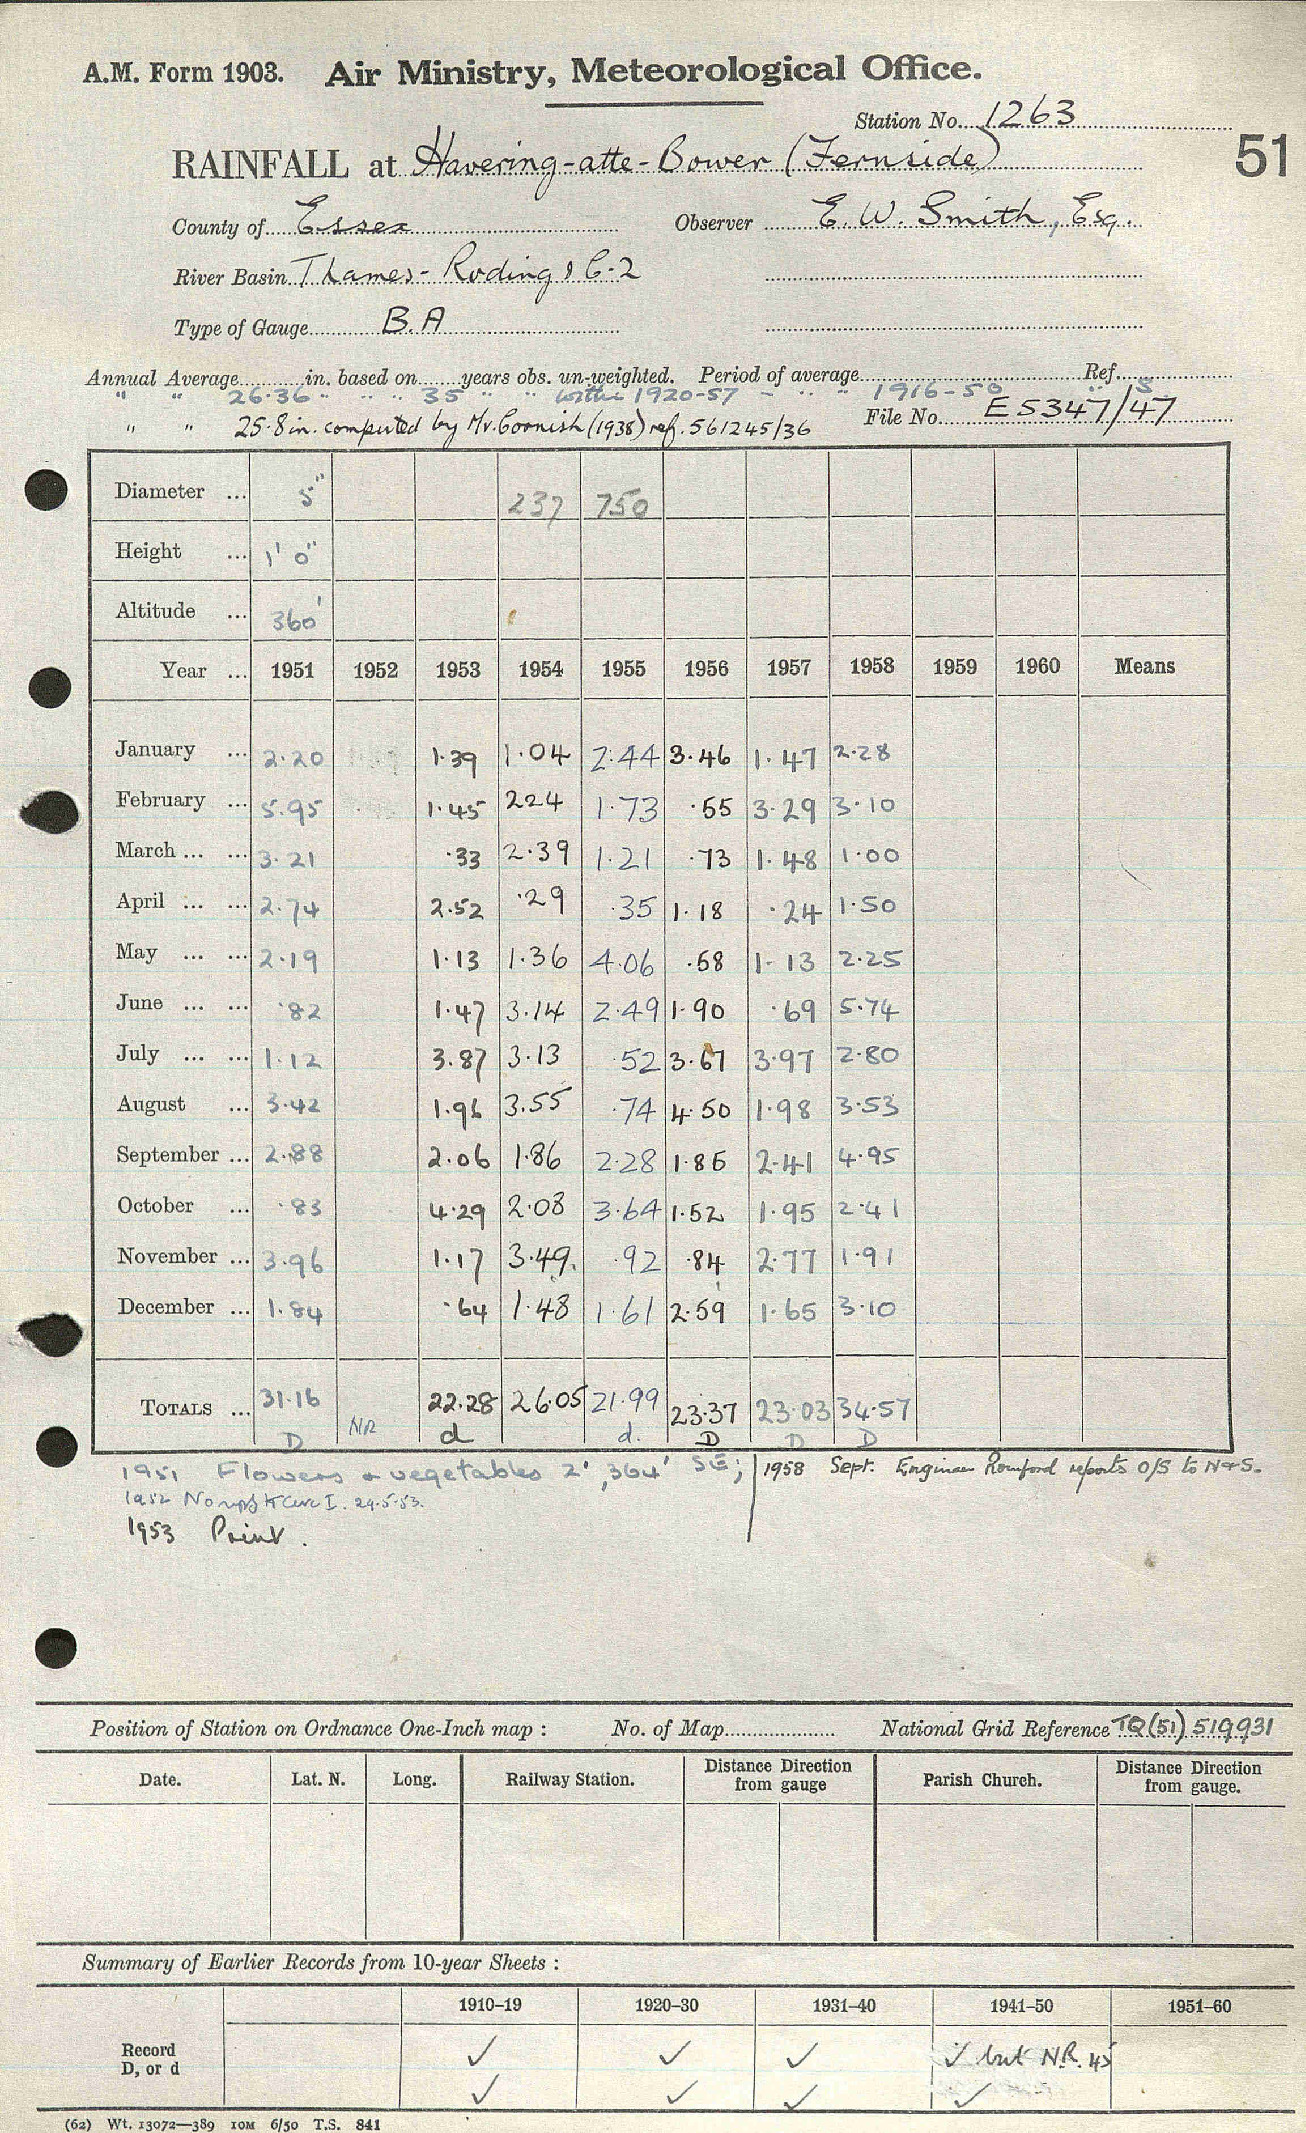 A.M. Form 1903. Air Ministry, Meteorological Office.
Station No. 1263
51
RAINFALL at Havering-atte-Bower (Fernside)
County of Essex Observer E. W. Smith, Esq.
River Basin Thames - Roding & C-2
Type of Gauge B.A
Annual Average in. based on years obs. un-weighted. Period of average Ref.
" " 26.36 " " " 35 " " within 1920-57 - " " 1916-50 " S
" " 25.8 in. computed by Mr. Cornish (1938) ref. 561245/36 File No. ES347/47
Diameter ... 5" 237 750
Height ... 1' 0"
Altitude ... 360'
Year ... 1951 1952 1953 1954 1955 1956 1957 1958 1959 1960 Means
January ... 2.20 1.39 1.04 2.44 3.46 1.47 2.28
February ... 5.95 1.45 2.24 1.73 .55 3.29 3.10
March ... ... 3.21 .33 2.39 1.21 .73 1.48 1.00
April ... ... 2.74 2.52 .29 .35 1.18 .24 1.50
May ... ... 2.19 1.13 1.36 4.06 .58 1.13 2.25
June ... ... .82 1.47 3.14 2.49 1.90 .69 5.74
July ... ... 1.12 3.87 3.13 .52 3.67 3.97 2.80
August ... 3.42 1.96 3.55 .74 4.50 1.98 3.53
September ... 2.88 2.06 1.86 2.28 1.85 2.41 4.95
October ... .83 4.29 2.08 3.64 1.52 1.95 2.41
November ... 3.96 1.17 3.49 .92 .84 2.77 1.91
December ... 1.84 .64 1.48 1.61 2.59 1.65 3.10
TOTALS ... 31.16 22.28 26.05 21.99 23.37 23.03 34.57
D NR d d. D D D
1951 Flowers & vegetables 2', 364' SE; 1958 Sept. Engineer Romford reports O/S to N & S.
1952 No 24.5.53.
1953 Print.
Position of Station on Ordnance One-Inch map : No. of Map National Grid Reference TQ(51) 519931
Date. Lat. N. Long. Railway Station. Distance Direction from gauge Parish Church. Distance Direction from gauge.
Summary of Earlier Records from 10-year Sheets :
1910–19 1920–30 1931–40 1941–50 1951–60
Record ✓ ✓ ✓ ✓ but N.R. 45
D, or d ✓ ✓ ✓ ✓
(62) Wt. 13072—389 10M 6/50 T.S. 841